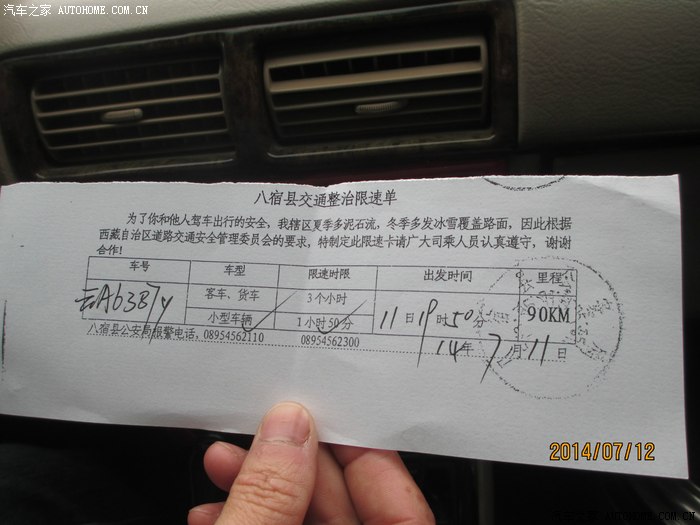 汽车之家 AUTOHOME.COM.CN
八宿县交通整治限速单
为了你和他人驾车出行的安全，我辖区夏季多泥石流，冬季多发冰雪覆盖路面，因此根据
西藏自治区道路交通安全管理委员会的要求，特制定此限速卡请广大司乘人员认真遵守，谢谢
合作！
车号 车型 限速时限 出发时间 里程
云A6387y 客车、货车 3个小时 11日19时50分 90KM
小型车辆 1小时50分
八宿县公安局报警电话，08954562110 08954562300 14年7月11日
2014/07/12
汽车之家 AUTOHOME.COM.CN